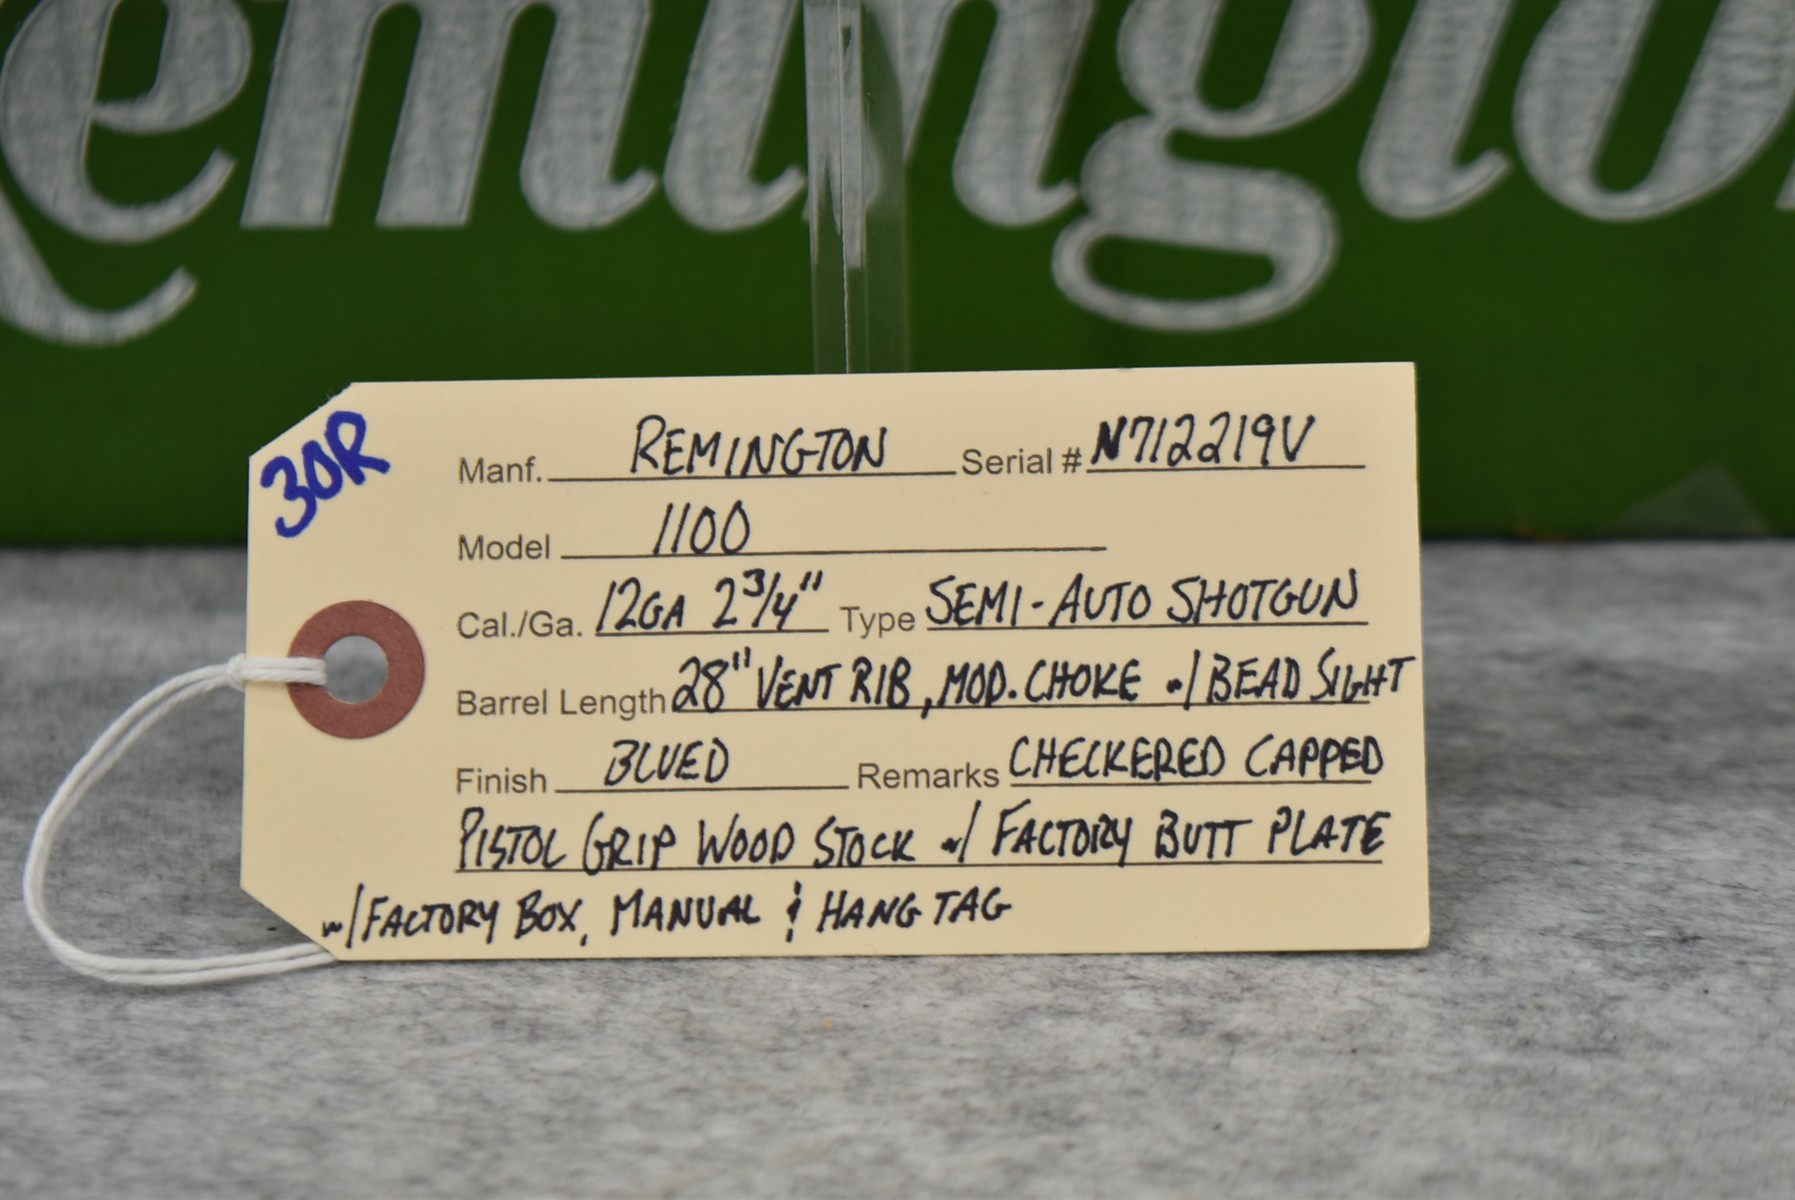 Remington
30R
Manf. REMINGTON Serial # N712219V
Model 1100
Cal./Ga. 12GA 2 3/4" Type SEMI-AUTO SHOTGUN
Barrel Length 28" VENT RIB, MOD. CHOKE w/ BEAD SIGHT
Finish BLUED Remarks CHECKERED CAPPED
PISTOL GRIP WOOD STOCK w/ FACTORY BUTT PLATE
w/ FACTORY BOX, MANUAL & HANG TAG